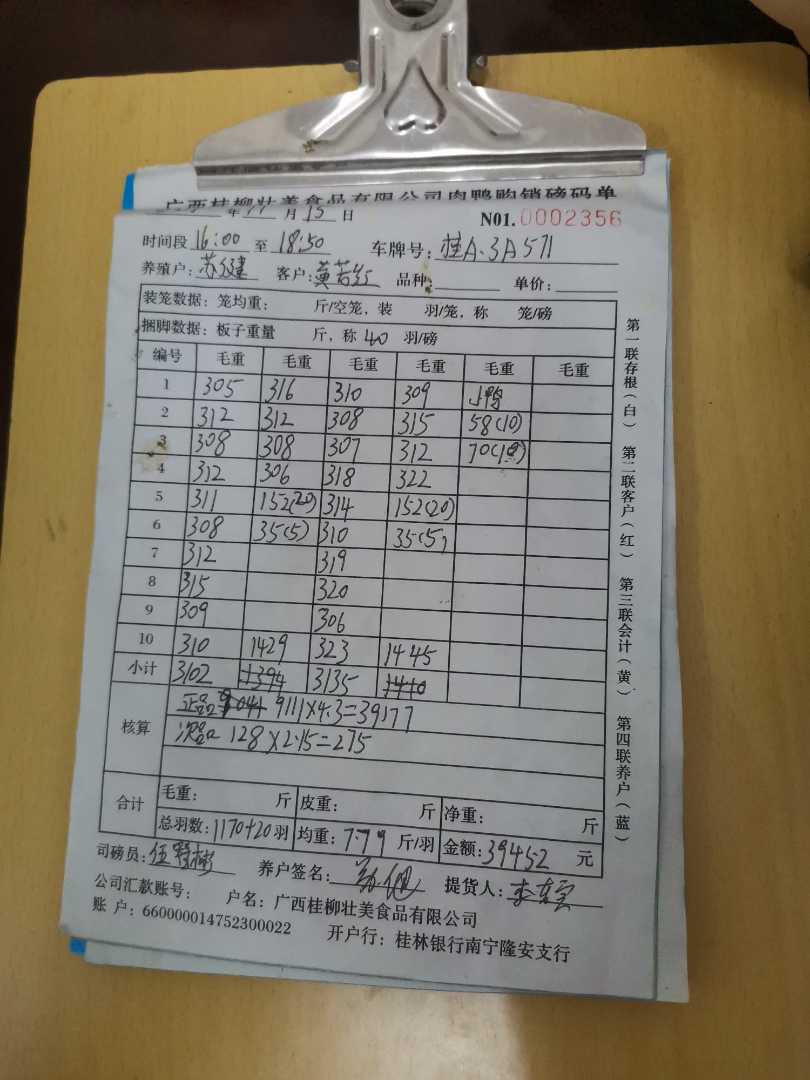 广西桂柳壮美食品有限公司肉鸭购销磅码单
年 11 月 15 日 N01. 0002356
时间段 16:00 至 18:50 车牌号: 桂A.3A571
养殖户: 苏健 客户: 黄若 品种: 单价:
装笼数据: 笼均重: 斤/空笼, 装 羽/笼, 称 笼/磅
捆脚数据: 板子重量 斤, 称 40 羽/磅
编号 毛重 毛重 毛重 毛重 毛重 毛重
1 305 316 310 309 小鸭
2 312 312 308 315 58(10)
3 308 308 307 312 70(10)
4 312 306 318 322
5 311 152(20) 314 152(20)
6 308 35(5) 310 35(5)
7 312 319
8 315 320
9 309 306
10 310 1429 323 1445
小计 3102 1394 3135 1410
核算
正品 9041 9111×4.3=39177
次品 128×2.15=275
合计
毛重: 斤 皮重: 斤 净重: 斤
总羽数: 1170+20 羽 均重: 7.79 斤/羽 金额: 39452 元
司磅员: 伍 养户签名: 提货人: 李
公司汇款账号: 户名: 广西桂柳壮美食品有限公司
账 户: 660000014752300022 开户行: 桂林银行南宁隆安支行
第一联存根(白) 第二联客户(红) 第三联会计(黄) 第四联养户(蓝)